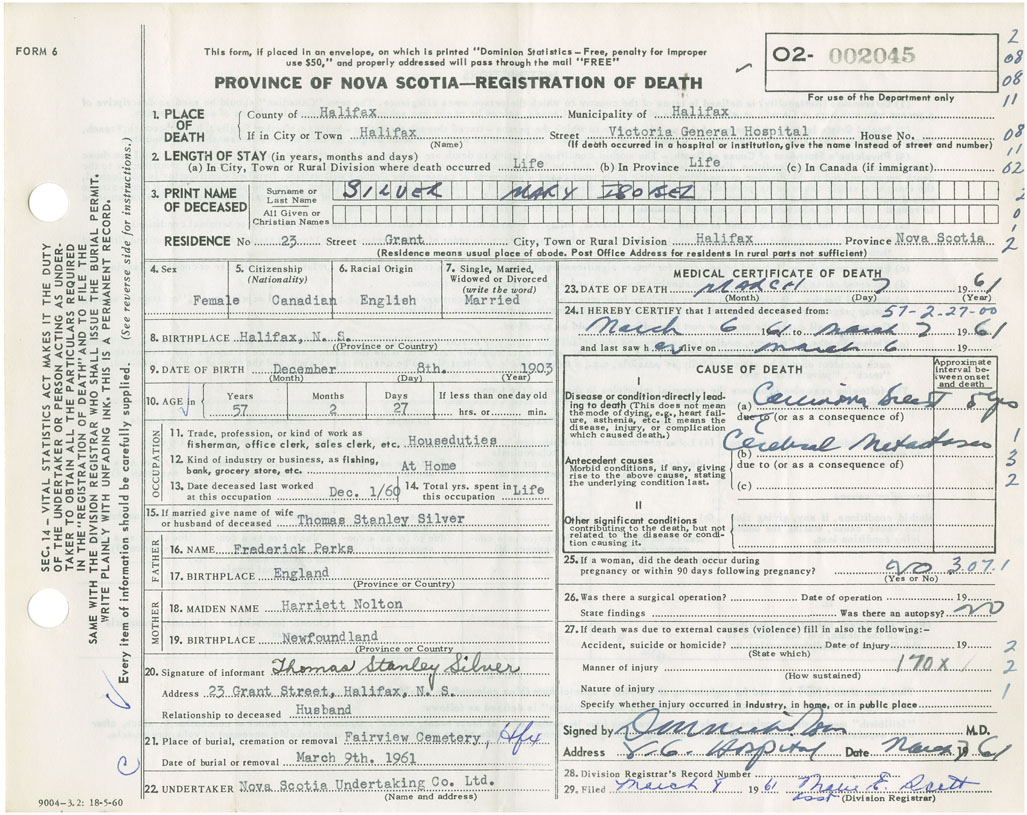 FORM 6
This form, if placed in an envelope, on which is printed "Dominion Statistics – Free, penalty for improper
use $50," and properly addressed will pass through the mail "FREE"
O2- 002045
For use of the Department only
PROVINCE OF NOVA SCOTIA—REGISTRATION OF DEATH
1. PLACE OF DEATH
County of Halifax Municipality of Halifax
If in City or Town Halifax Street Victoria General Hospital House No.
(Name) (If death occurred in a hospital or institution, give the name instead of street and number)
2. LENGTH OF STAY (in years, months and days)
(a) In City, Town or Rural Division where death occurred Life (b) In Province Life (c) In Canada (if immigrant)
3. PRINT NAME OF DECEASED
Surname or Last Name SILVER MARY ISOBEL
All Given or Christian Names
RESIDENCE No 23 Street Grant City, Town or Rural Division Halifax Province Nova Scotia
(Residence means usual place of abode. Post Office Address for residents in rural parts not sufficient)
4. Sex Female
5. Citizenship (Nationality) Canadian
6. Racial Origin English
7. Single, Married, Widowed or Divorced (write the word) Married
8. BIRTHPLACE Halifax, N. S.
(Province or Country)
9. DATE OF BIRTH December 8th. 1903
(Month) (Day) (Year)
10. AGE in Years 57 Months 2 Days 27 If less than one day old hrs. or min.
OCCUPATION
11. Trade, profession, or kind of work as fisherman, office clerk, sales clerk, etc. Houseduties
12. Kind of industry or business, as fishing, bank, grocery store, etc. At Home
13. Date deceased last worked at this occupation Dec. 1/60
14. Total yrs. spent in this occupation Life
15. If married give name of wife or husband of deceased Thomas Stanley Silver
FATHER
16. NAME Frederick Perks
17. BIRTHPLACE England
(Province or Country)
MOTHER
18. MAIDEN NAME Harriett Nolton
19. BIRTHPLACE Newfoundland
(Province or Country)
20. Signature of informant Thomas Stanley Silver
Address 23 Grant Street, Halifax, N. S.
Relationship to deceased Husband
21. Place of burial, cremation or removal Fairview Cemetery, Hfx
Date of burial or removal March 9th. 1961
22. UNDERTAKER Nova Scotia Undertaking Co. Ltd.
(Name and address)
9004–3.2: 18-5-60
MEDICAL CERTIFICATE OF DEATH
23. DATE OF DEATH MARCH 7 1961
(Month) (Day) (Year)
24. I HEREBY CERTIFY that I attended deceased from: 57-2-27-00
March 6 1961 to March 7 1961
and last saw her alive on March 6 19
CAUSE OF DEATH
Approximate interval between onset and death
I
Disease or condition directly leading to death (This does not mean the mode of dying, e.g., heart failure, asthenia, etc. It means the disease, injury, or complication which caused death.)
(a) Carcinoma breast 5 yrs
due to (or as a consequence of)
Cerebral Metastases
Antecedent causes
Morbid conditions, if any, giving rise to the above cause, stating the underlying condition last.
(b)
due to (or as a consequence of)
(c)
II
Other significant conditions contributing to the death, but not related to the disease or condition causing it.
25. If a woman, did the death occur during pregnancy or within 90 days following pregnancy? NO 307.1
(Yes or No)
26. Was there a surgical operation? Date of operation 19
State findings Was there an autopsy? NO
27. If death was due to external causes (violence) fill in also the following:–
Accident, suicide or homicide? Date of injury 19
(State which)
Manner of injury 170X
(How sustained)
Nature of injury
Specify whether injury occurred in industry, in home, or in public place
Signed by M.D.
Address V.G. Hospital Date March 61
28. Division Registrar's Record Number
29. Filed March 8 1961
(Division Registrar)
SEC. 14 – VITAL STATISTICS ACT MAKES IT THE DUTY
OF THE UNDERTAKER OR PERSON ACTING AS UNDER-
TAKER TO OBTAIN ALL THE PARTICULARS REQUIRED
IN THE "REGISTRATION OF DEATH" AND TO FILE THE
SAME WITH THE DIVISION REGISTRAR WHO SHALL ISSUE THE BURIAL PERMIT.
WRITE PLAINLY WITH UNFADING INK. THIS IS A PERMANENT RECORD.
Every item of information should be carefully supplied. (See reverse side for instructions.)
2
08
08
11
08
11
62
2
0
1
2
1
3
2
2
2
1